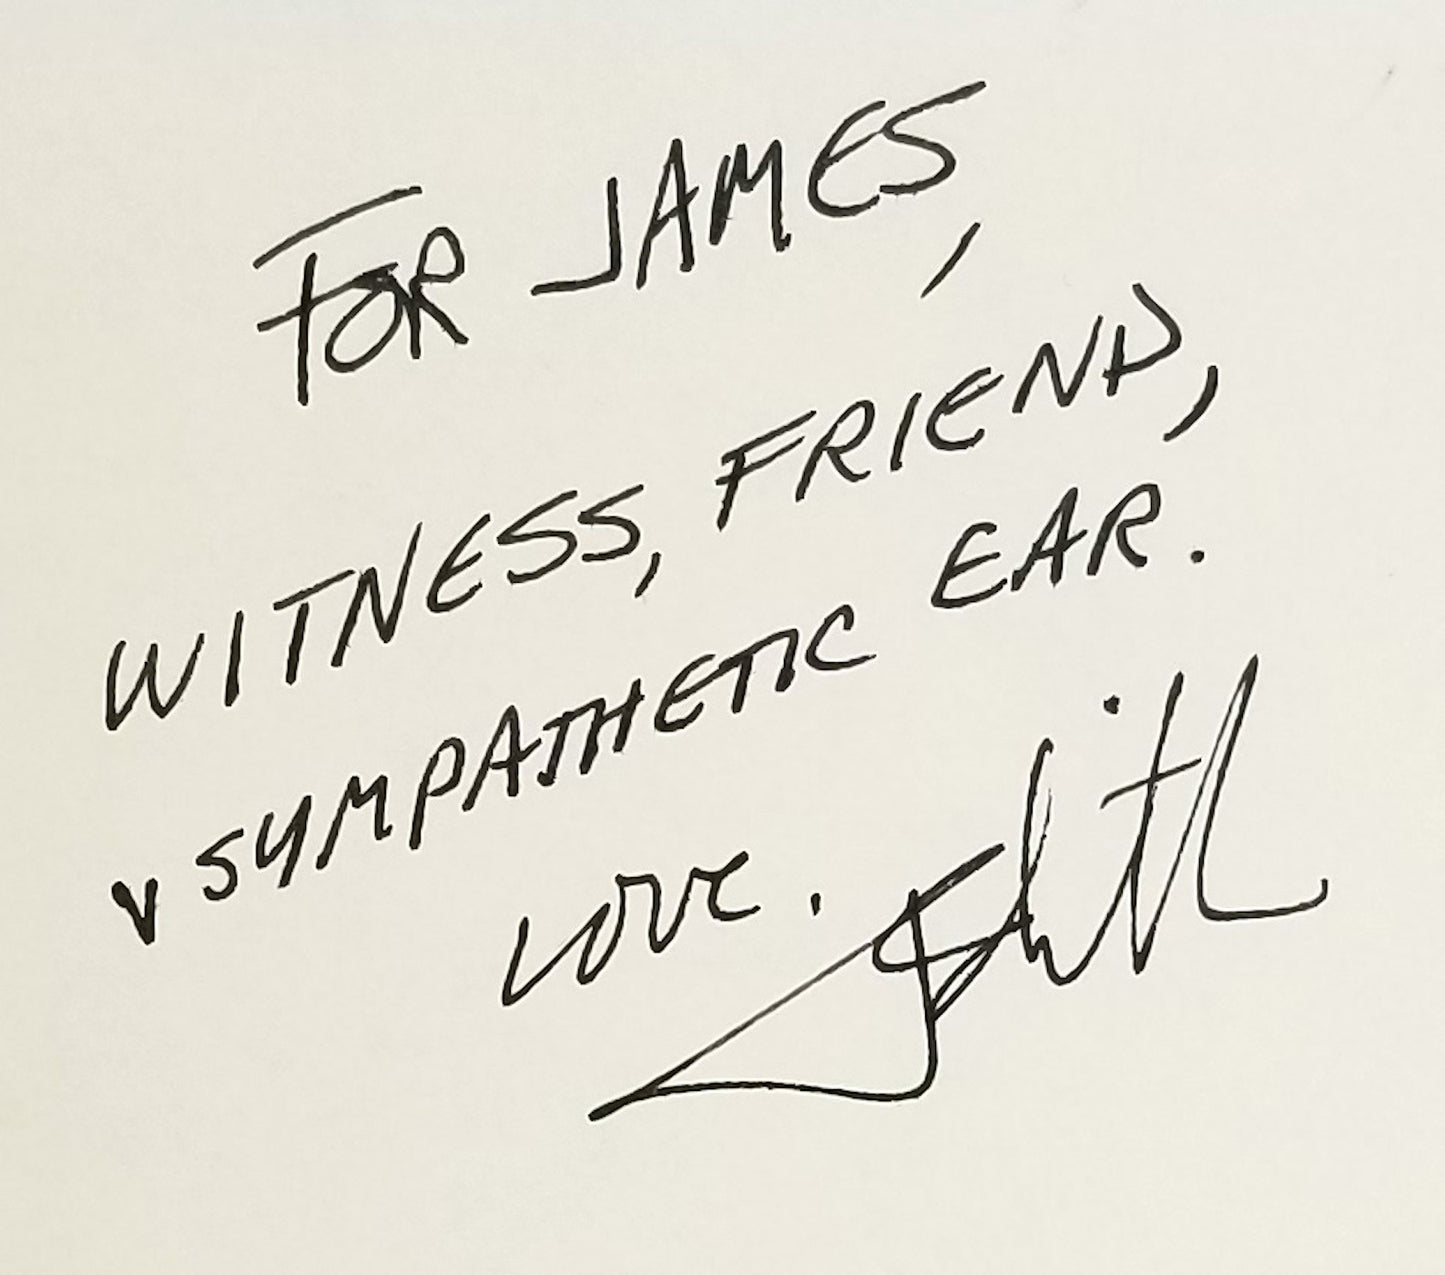 FOR JAMES,
WITNESS, FRIEND,
v SYMPATHETIC EAR.
Love.